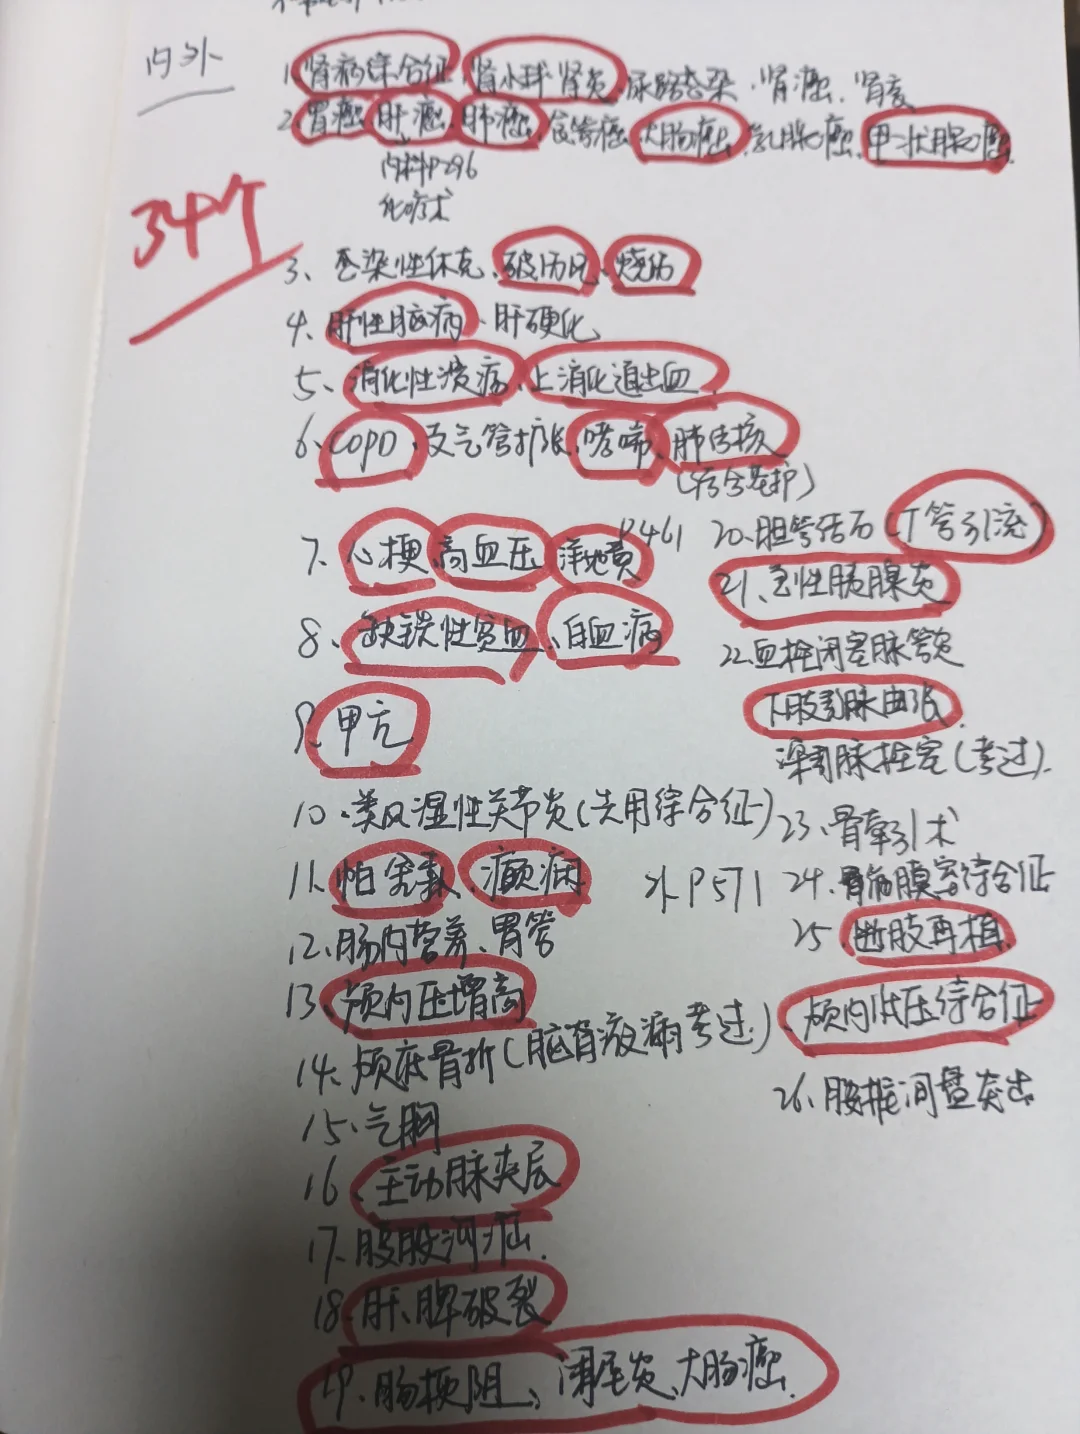 内外
1.肾病综合征、肾小球肾炎、尿路感染、肾癌、肾衰
2.胃癌、肝癌、肺癌、食管癌、大肠癌、乳腺癌、甲状腺癌
内科P296
化疗术
34个
3、感染性休克、破伤风、烧伤
4、肝性脑病、肝硬化
5、消化性溃疡、上消化道出血
6、COPD、支气管扩张、哮喘、肺结核
7、心梗、高血压、洋地黄
8、缺铁性贫血、白血病
9、甲亢
10、类风湿性关节炎(失用综合征)
11、帕金森、癫痫
12、肠内营养、胃管
13、颅内压增高
14、颅底骨折(脑脊液漏考过)、颅内低压综合征
15、气胸
16、主动脉夹层
17、腹股沟疝
18、肝、脾破裂
19、肠梗阻、阑尾炎、大肠癌
P461 20、胆管结石(T管引流)
21、急性胰腺炎
22、血栓闭塞脉管炎
下肢静脉曲张
深静脉栓塞(考过)
23、骨牵引术
外P571 24、骨筋膜室综合征
25、断肢再植
26、腰椎间盘突出